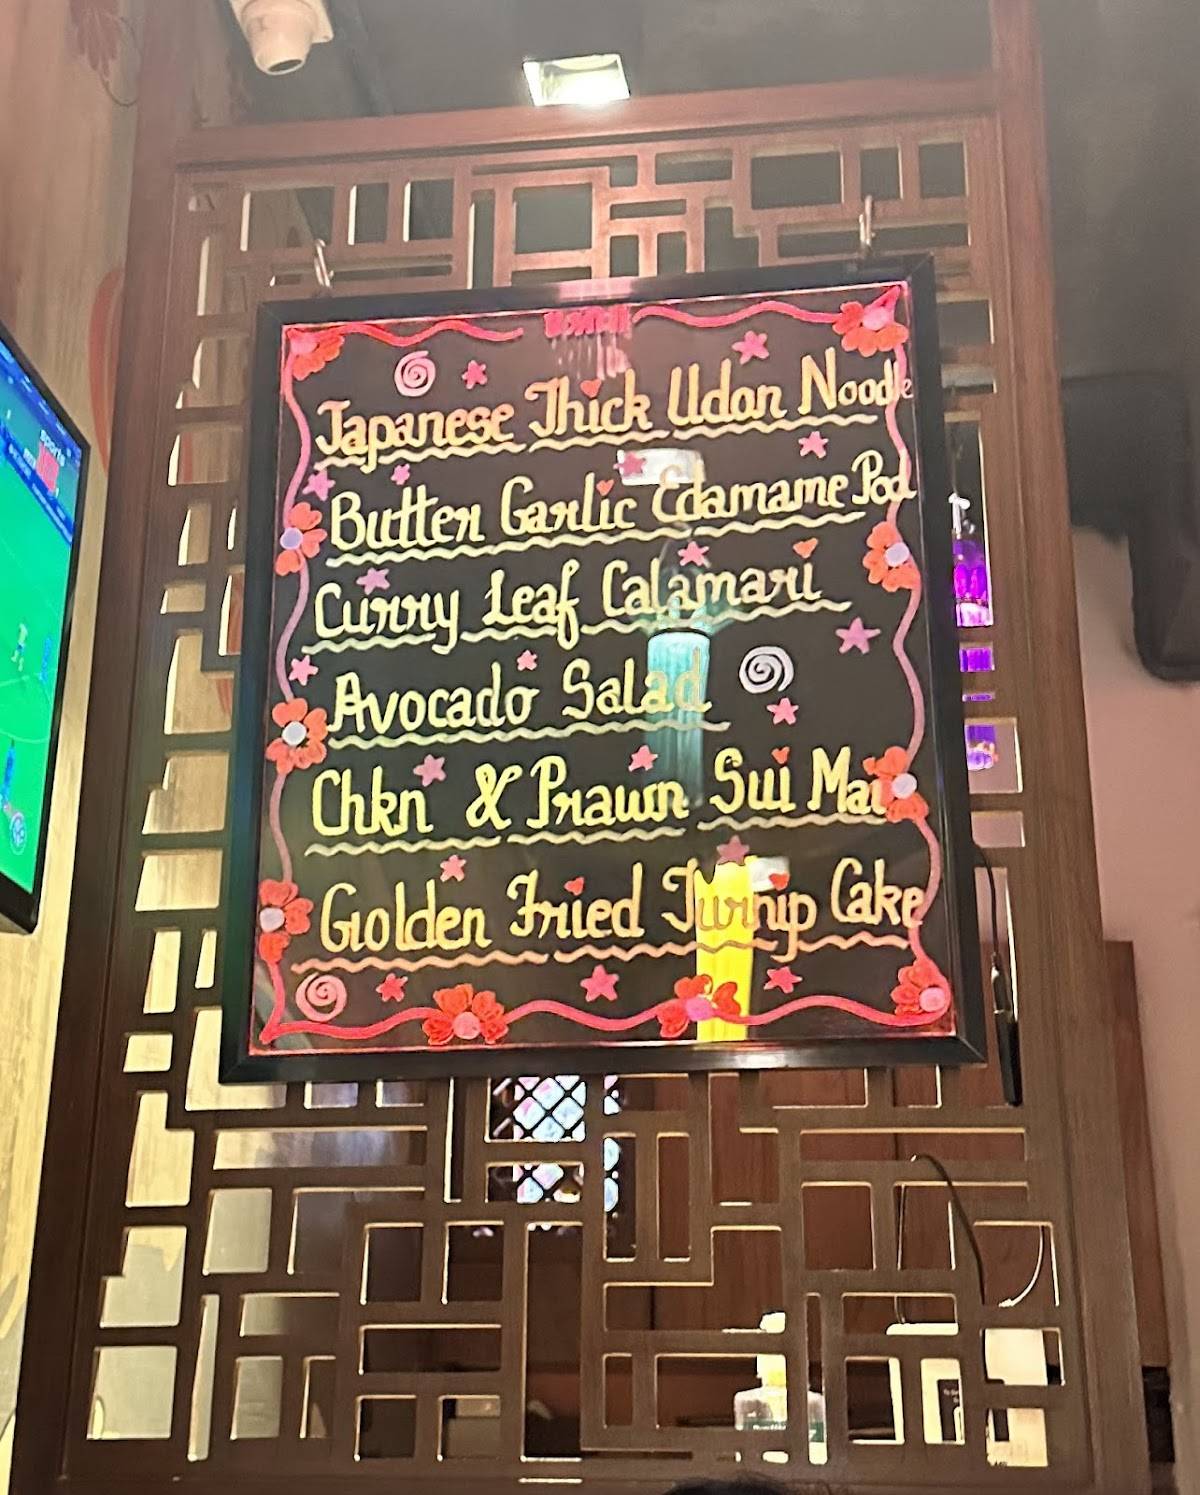 Japanese Thick Udon Noodle
Butter Garlic Edamame Pod
Curry Leaf Calamari
Avocado Salad
Chkn & Prawn Sui Mai
Golden Fried Turnip Cake